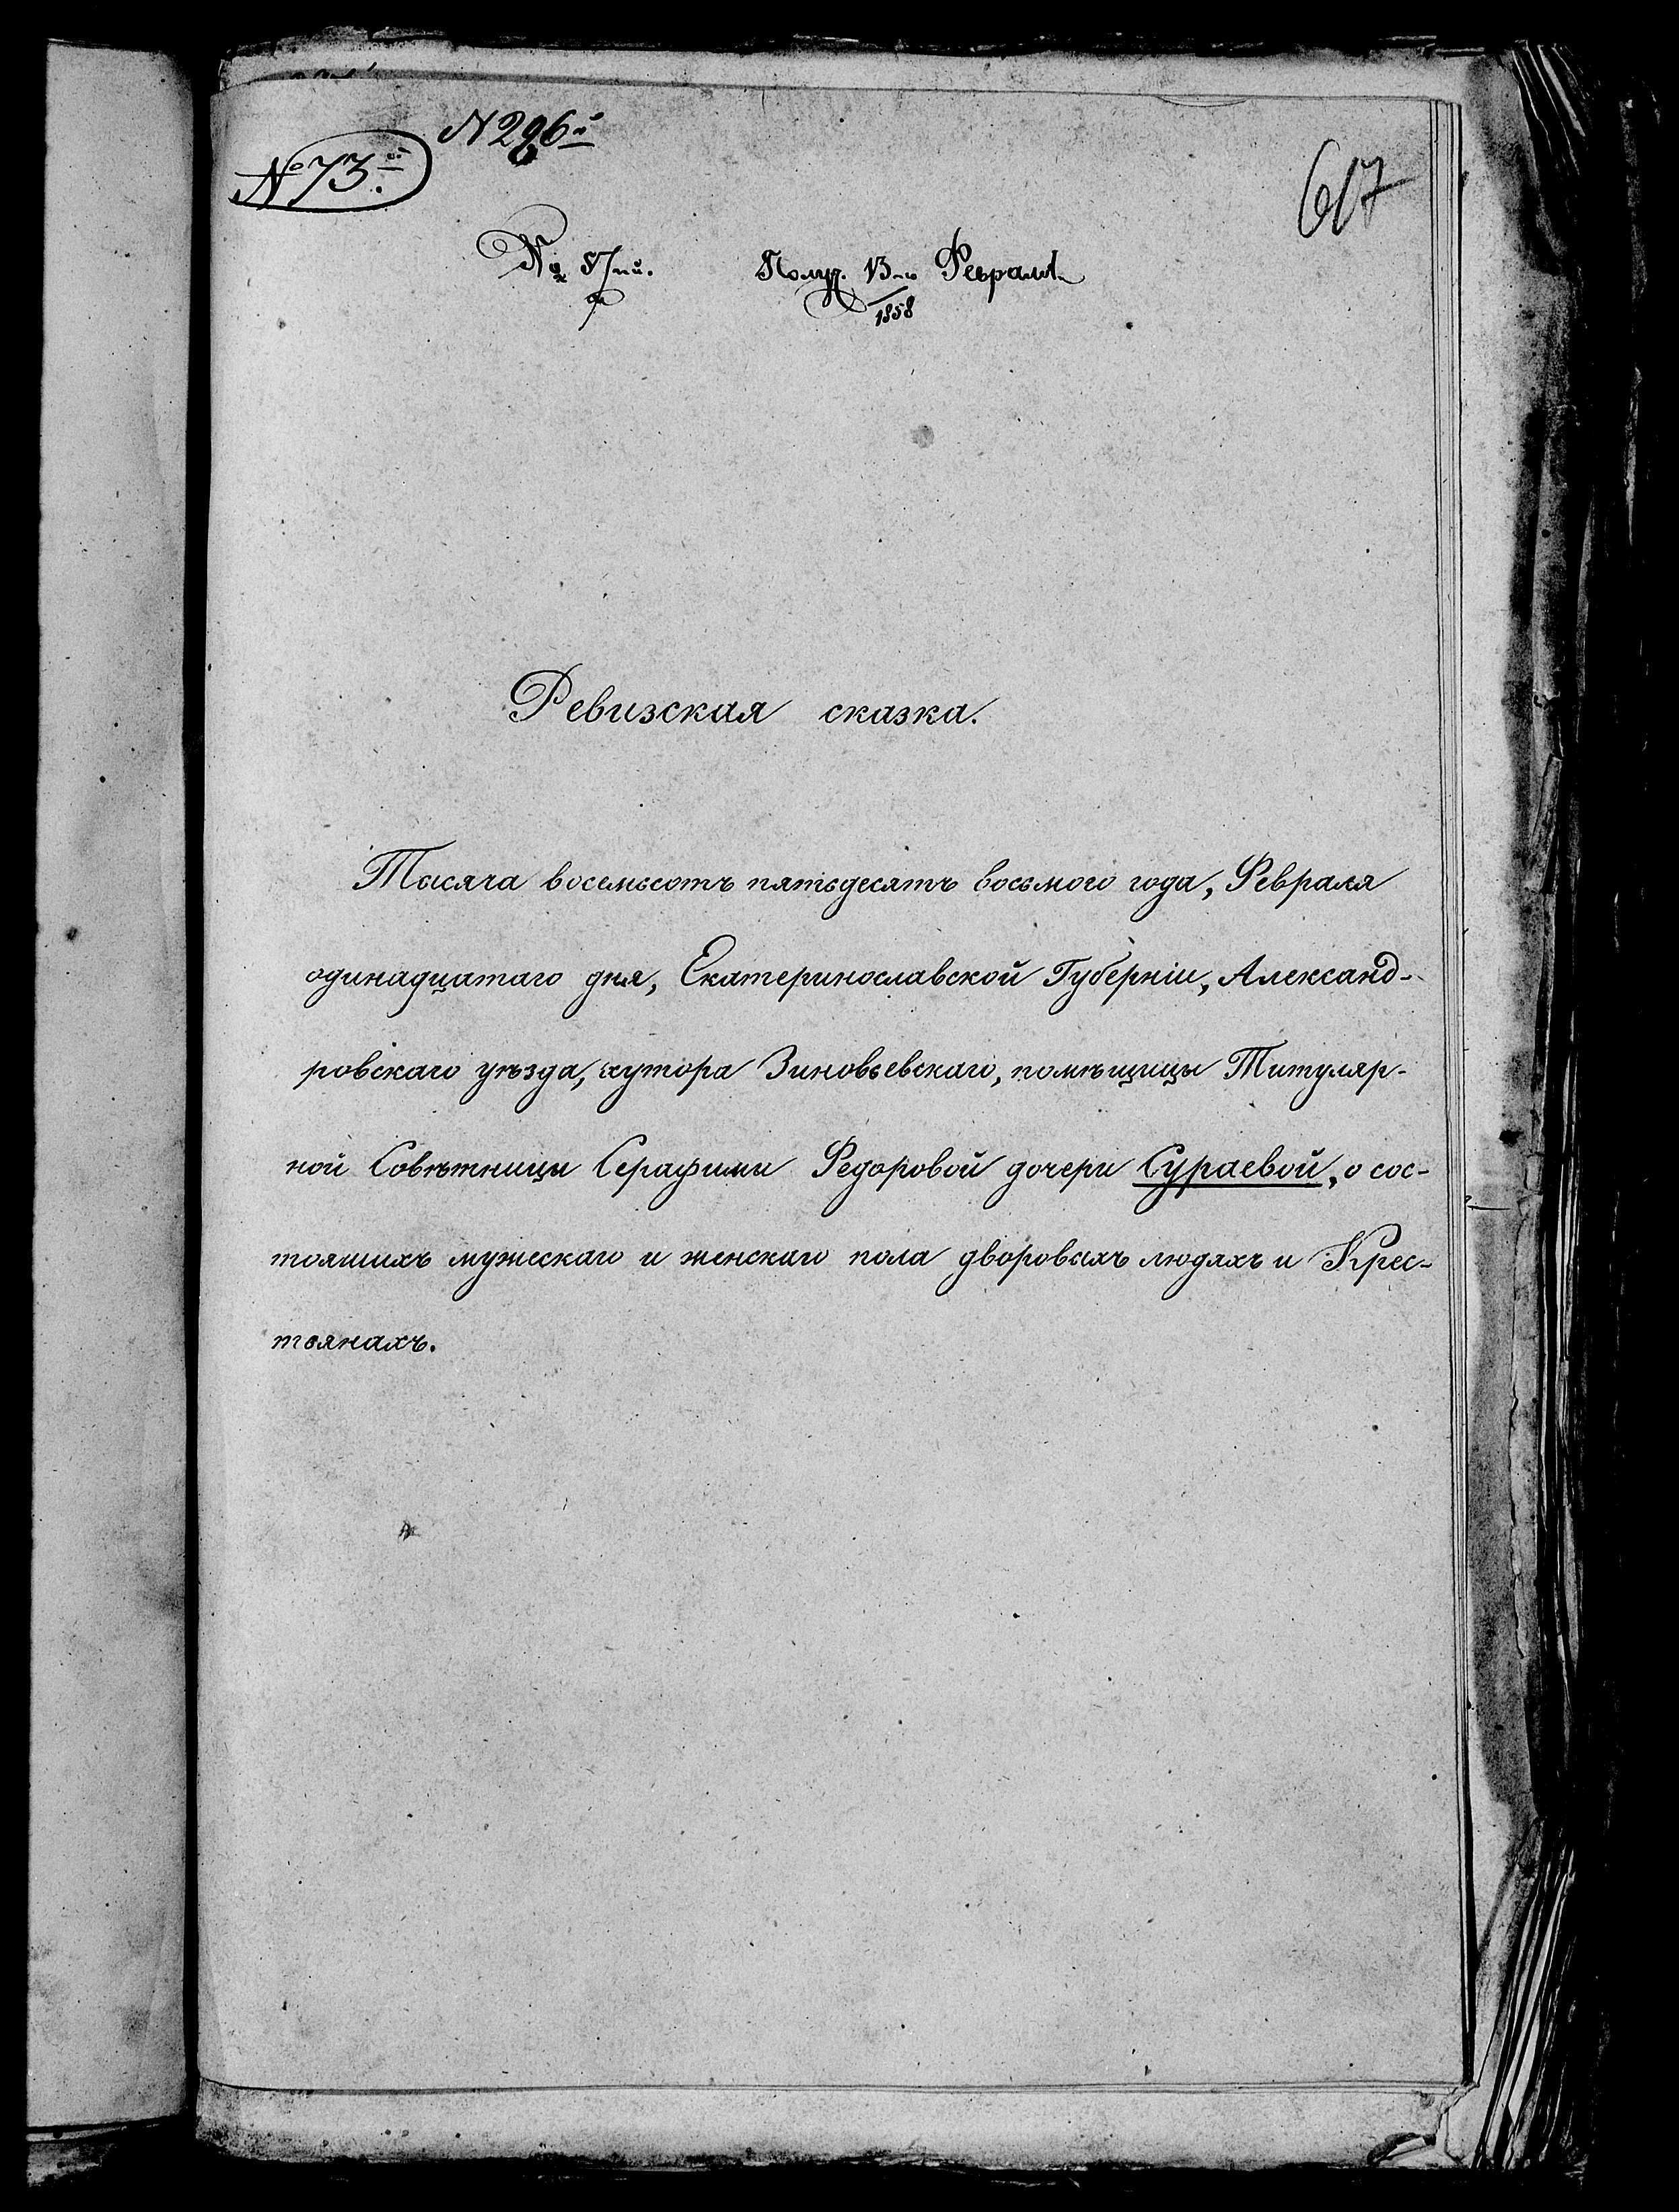 № 286й
№ 73й.
617
№ 57мй. Получ. 13го Февраля
1858
Ревизская сказка.
Тысяча восемьсотъ пятьдесятъ восьмого года, Февраля
одинадцатаго дня, Екатеринославской Губерніи, Александ-
ровскаго уѣзда, хутора Зиновьевскаго, помѣщицы Титуляр-
ной Совѣтницы Серафимы Федоровой дочери Сураевой, о сос-
тоящихъ мужескаго и женскаго пола дворовыхъ людяхъ и Крес-
тьянахъ.